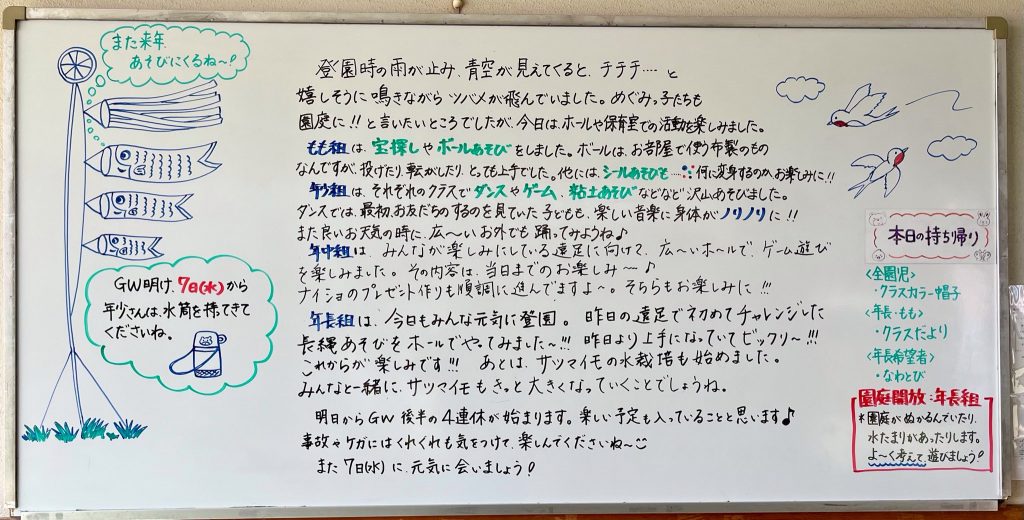 また来年
あそびにくるね〜!
登園時の雨が止み、青空が見えてくると、チチチ‥‥と
嬉しそうに鳴きながらツバメが飛んでいました。めぐみっ子たちも
園庭に!!と言いたいところでしたが、今日は、ホールや保育室での活動を楽しみました。
もも組は、宝探しやボールあそびをしました。ボールは、お部屋で使う布製のもの
なんですが、投げたり、転がしたり、とっても上手でした。他には、シールあそびも‥‥何に変身するのかお楽しみに!!
年少組は、それぞれのクラスでダンスやゲーム、粘土あそびなどなど沢山あそびました。
ダンスでは、最初、お友だちのするのを見ていた子どもも、楽しい音楽に身体がノリノリに!!
また良いお天気の時に、広〜いお外でも踊ってみようね♪
年中組は、みんなが楽しみにしている遠足に向けて、広〜いホールで、ゲーム遊び
を楽しみました。その内容は、当日までのお楽しみ〜♪
ナイショのプレゼント作りも順調に進んでますよ〜。そちらもお楽しみに!!!
年長組は、今日もみんな元気に登園。昨日の遠足でネ刀めてチャレンジした
長縄あそびをホールでやってみました〜!!!昨日より上手になっていてビックリ〜!!!
これからが楽しみです!!!あとは、サツマイモの水栽培も始めました。
みんなと一緒に、サツマイモもきっと大きくなっていくことでしょうね。
明日からGW後半の4連休が始まります。楽しい予定も入っていることと思います♪
事故やケガにはくれぐれも気をつけて、楽しんでくださいね〜
また7日(水)に、元気に会いましょう!
GW明け、7日(水)から
年少さんは、水筒を持ってきて
くださいね。
本日の持ち帰り
<全園児>
・クラスカラー帽子
<年長・もも>
・クラスだより
<年長希望者>
・なわとび
園庭開放:年長組
*園庭がぬかるんでいたり、
水たまりがあったりします。
よ〜く考えて、遊びましょう!